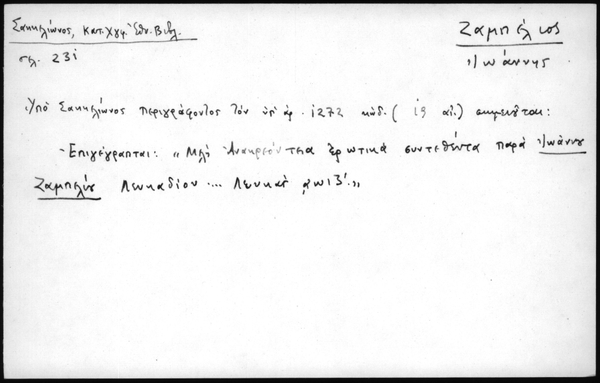 Σακκελίωνος, Κατ. Χγφ. Ἐθν. Βιβλ.
σελ. 231
Ζαμπέλιος
Ἰωάννης
Ὑπὸ Σακκελίωνος περιγράφοντος τὸν ὑπ' ἀρ. 1272 κώδ. (19 αἰ.) σημειοῦται:
- Ἐπιγέγραπται: "Μέλη Ἀνακρεόντεια ἐρωτικὰ συντεθέντα παρὰ Ἰωάννου
Ζαμπελίου Λευκαδίου ... Λευκὰς ͵αωιβʹ."